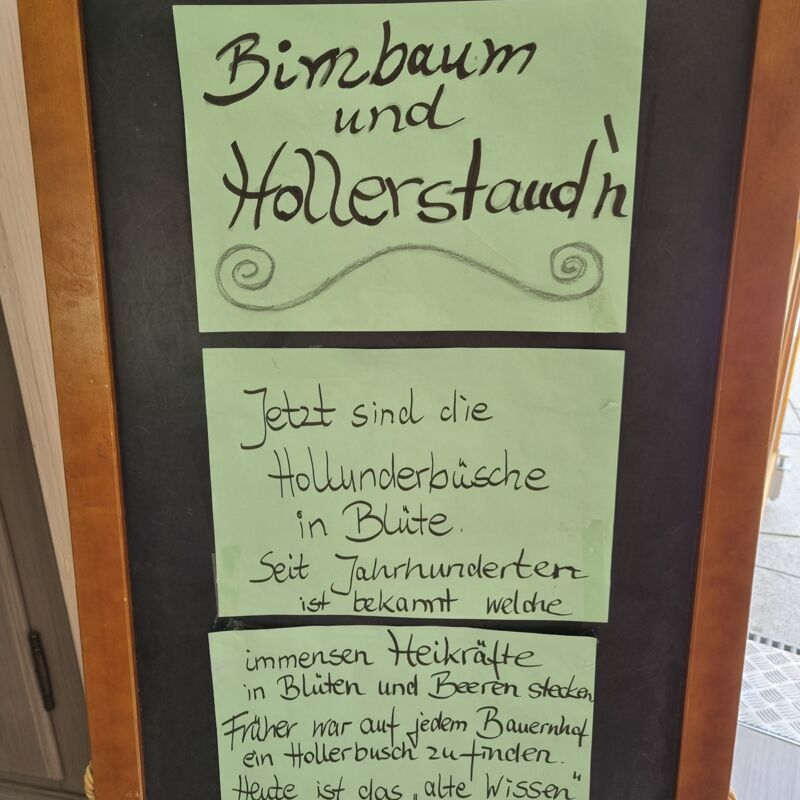 Birnbaum
und
Hollerstaud'n
Jetzt sind die
Hollunderbüsche
in Blüte.
Seit Jahrhunderten
ist bekannt welche
immensen Heikräfte
in Blüten und Beeren stecken.
Früher war auf jedem Bauernhof
ein Hollerbusch zu finden.
Heute ist das „alte Wissen"